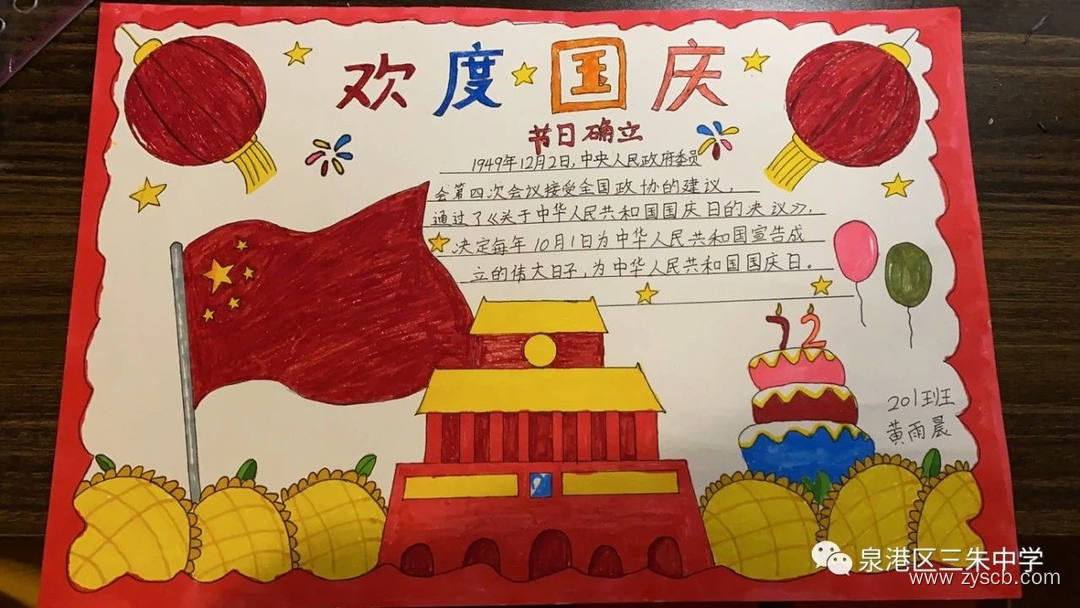 欢度国庆
节日确立
1949年12月2日,中央人民政府委员
会第四次会议接受全国政协的建议,
通过了《关于中华人民共和国国庆日的决议》,
决定每年10月1日为中华人民共和国宣告成
立的伟大日子,为中华人民共和国国庆日。
72
201班
黄雨晨
泉港区三朱中学
www.zyscb.com